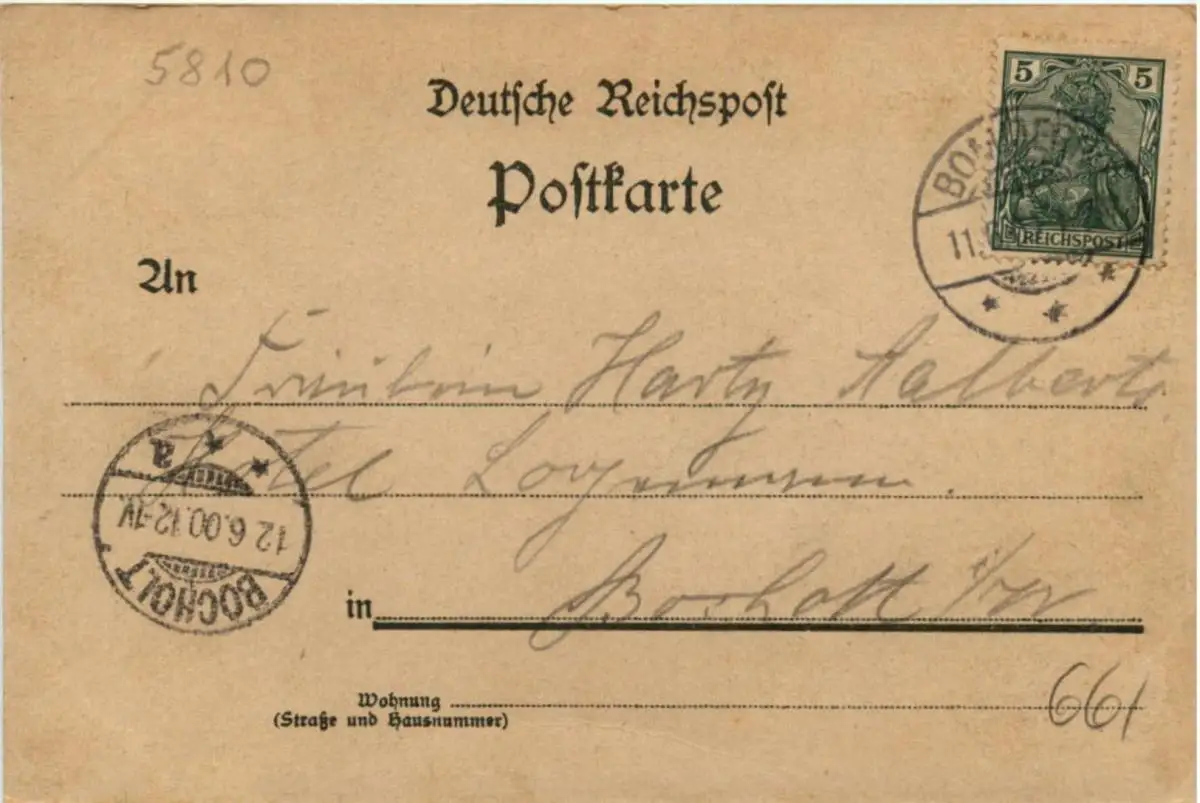 5810
Deutsche Reichspost
Postkarte
5 5
REICHSPOST
BONN
11.
An
Fräulein Harty Aalberts
Hotel
in Bocholt i/W
a
12.6.00.12-1V.
BOCHOLT
Wohnung
(Straße und Hausnummer)
661